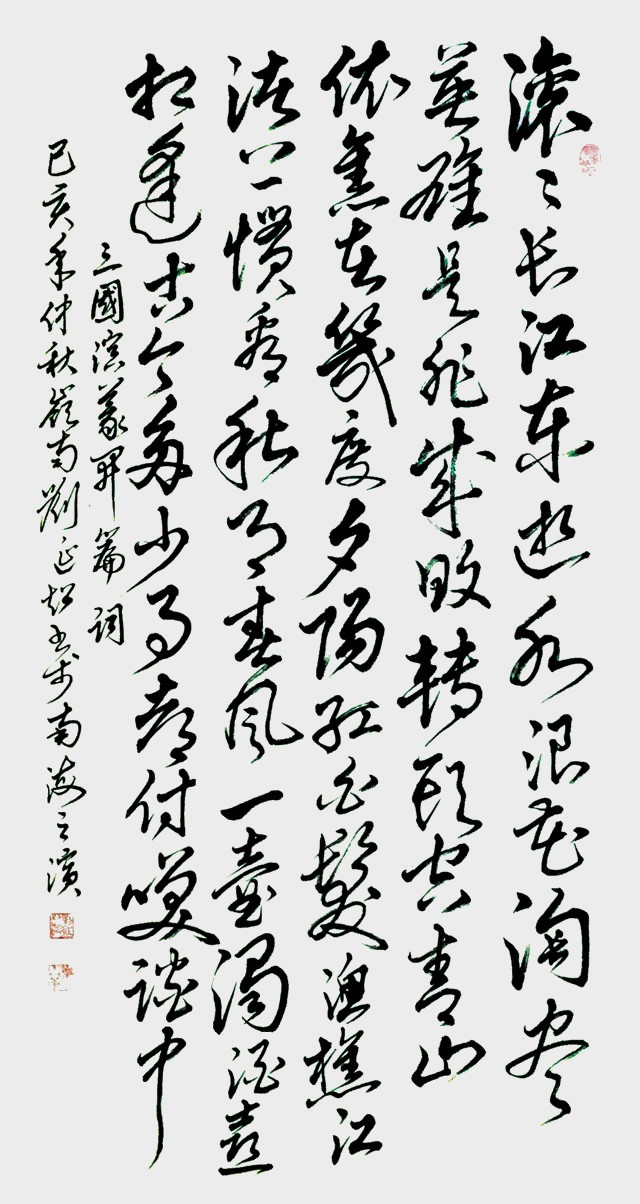 滚〻长江东逝水浪花淘尽
英雄是非成败轉頭空青山
依舊在幾度夕陽红白髮渔樵江
渚上惯看秋月春风一壺濁酒喜
相逢古今多少事都付笑谈中
三國演義開篇词
己亥年仲秋嶺南劉正超书於南海之濱